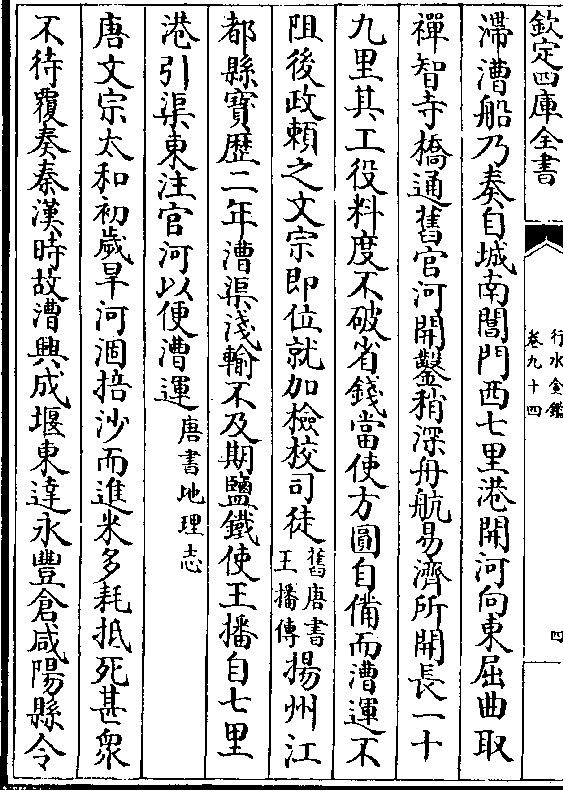 欽定四庫全書
行水金鑑
卷九十四
四
滯漕船乃奏自城南閶門西七里港開河向東屈曲取
禪智寺橋通舊官河開鑿稍深舟航易濟所開長一十
九里其工役料度不破省錢當使方圓自備而漕運不
阻後政賴之文宗即位就加檢校司徒舊唐書王播傳揚州江
都縣寶歷二年漕渠淺輸不及期鹽鐵使王播自七里
港引渠東注官河以便漕運唐書地理志
唐文宗太和初歲旱河涸掊沙而進米多耗抵死甚衆
不待覆奏秦漢時故漕興成堰東達永豐倉咸陽縣令